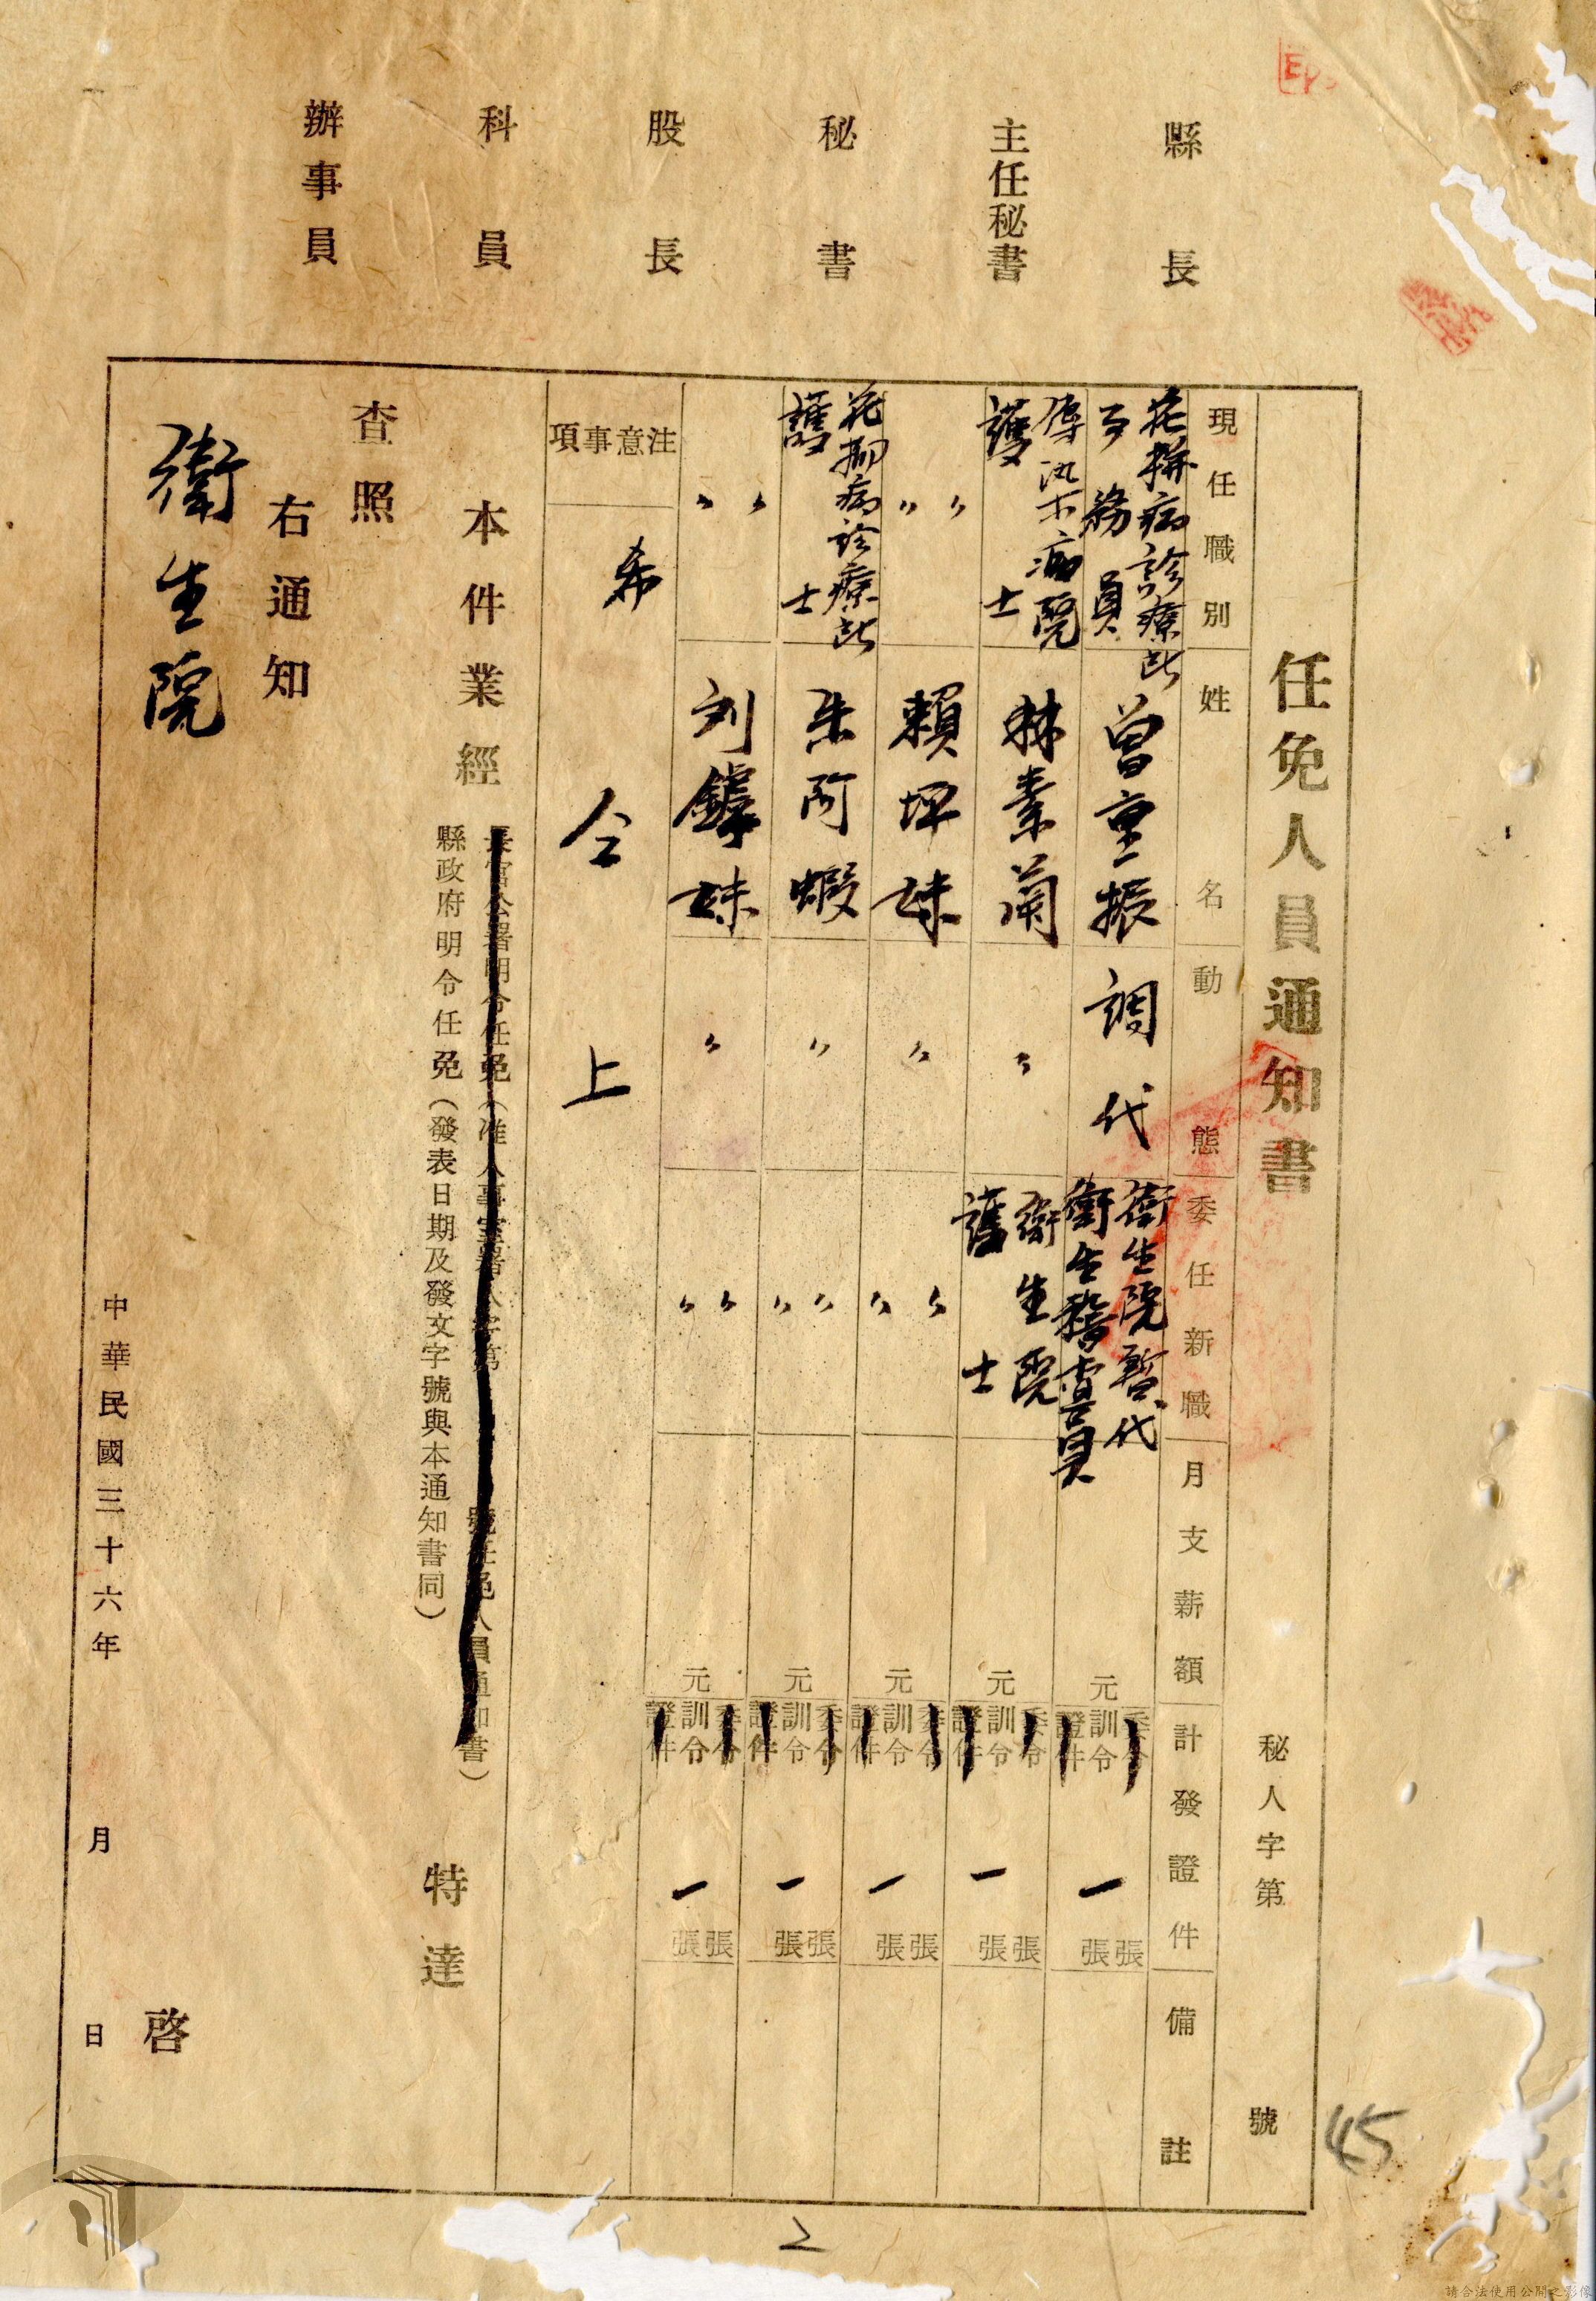 縣長
主任秘書
秘書
股長
科員
辦事員
任免人員通知書
秘人字第 號
現任職別
姓名
動態
委任新職
月支薪額
計發證件
備註
病診療所
務員
曾重振
調代
衛生院暫代
衛生稽查員
元
委令
訓令
證件
一
張
張
傳染病院
護士
林素蘭
〃
衛生院
護士
元
委令
訓令
證件
一
張
張
〃〃
賴坤妹
〃
〃〃
元
委令
訓令
證件
一
張
張
病診療所
護士
朱阿蝦
〃
〃〃
元
委令
訓令
證件
一
張
張
〃〃
刘妹
〃
〃〃
元
委令
訓令
證件
一
張
張
注意事項
希
仝上
本件業經
長官公署明令任免(准人事室署人字第 號任免人員通知書)
縣政府明令任免(發表日期及發文字號與本通知書同)
特達
查照
右通知
衛生院
啓
中華民國三十六年 月 日
45
2
請合法使用公開之影像